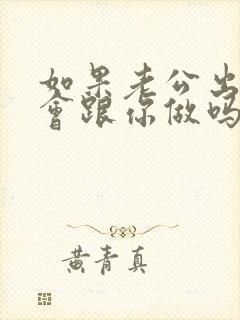 如果老公出
會跟你做吗
黄青真